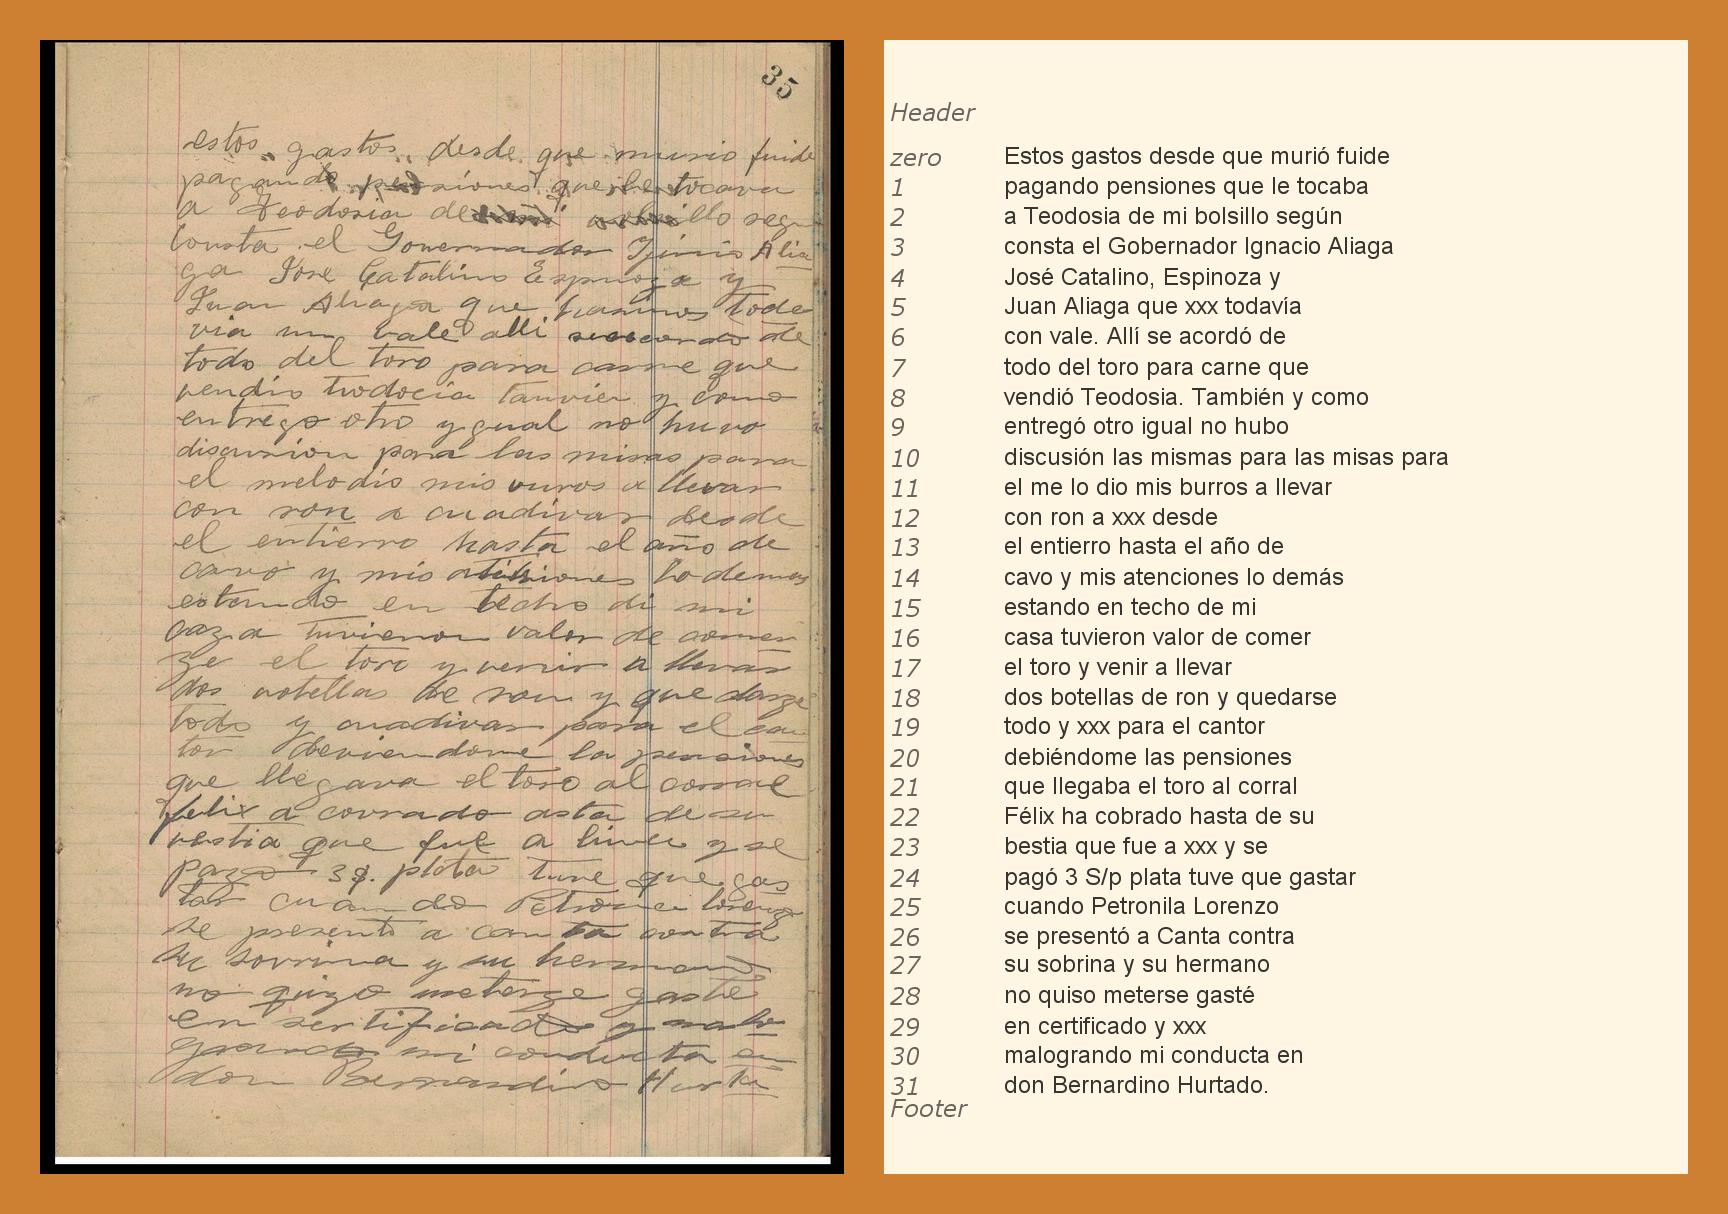 35
estos gastos desde que murio fuide
pagando pensiones que le tocava
a Teodosia de llo segu
consta el Governador Alia
ga Jose Catalino Espinoza y
Juan Aliaga que toda
via un vale alli de
todo del toro para carne que
vendio tanvien y como
entrego otro ygual no huvo
discusion para las misas para
el melodio mis vuros a llevar
con ron a cuadivar desde
el entierro hasta el año de
cavo y mis lo demas
estando en techo di mi
caza tuvieron valor de comer
ze el toro y venir a llevar
dos votellas de ron y que darze
todo y cuadivar para el can
tor deviendome la pensiones
que llegava el toro al corral
felix a covrado asta de su
vestia que fue a y se
pago 3 $. plata tuve que gas
tar cuando Petronila Lorenzo
se presento a canta contra
su sovrina y su hermano
no quizo meterze gaste
en sertificado y malo
grando mi conducta en
don Bernardino Hurta
Header
zero Estos gastos desde que murió fuide
1 pagando pensiones que le tocaba
2 a Teodosia de mi bolsillo según
3 consta el Gobernador Ignacio Aliaga
4 José Catalino, Espinoza y
5 Juan Aliaga que xxx todavía
6 con vale. Allí se acordó de
7 todo del toro para carne que
8 vendió Teodosia. También y como
9 entregó otro igual no hubo
10 discusión las mismas para las misas para
11 el me lo dio mis burros a llevar
12 con ron a xxx desde
13 el entierro hasta el año de
14 cavo y mis atenciones lo demás
15 estando en techo de mi
16 casa tuvieron valor de comer
17 el toro y venir a llevar
18 dos botellas de ron y quedarse
19 todo y xxx para el cantor
20 debiéndome las pensiones
21 que llegaba el toro al corral
22 Félix ha cobrado hasta de su
23 bestia que fue a xxx y se
24 pagó 3 S/p plata tuve que gastar
25 cuando Petronila Lorenzo
26 se presentó a Canta contra
27 su sobrina y su hermano
28 no quiso meterse gasté
29 en certificado y xxx
30 malogrando mi conducta en
31 don Bernardino Hurtado.
Footer